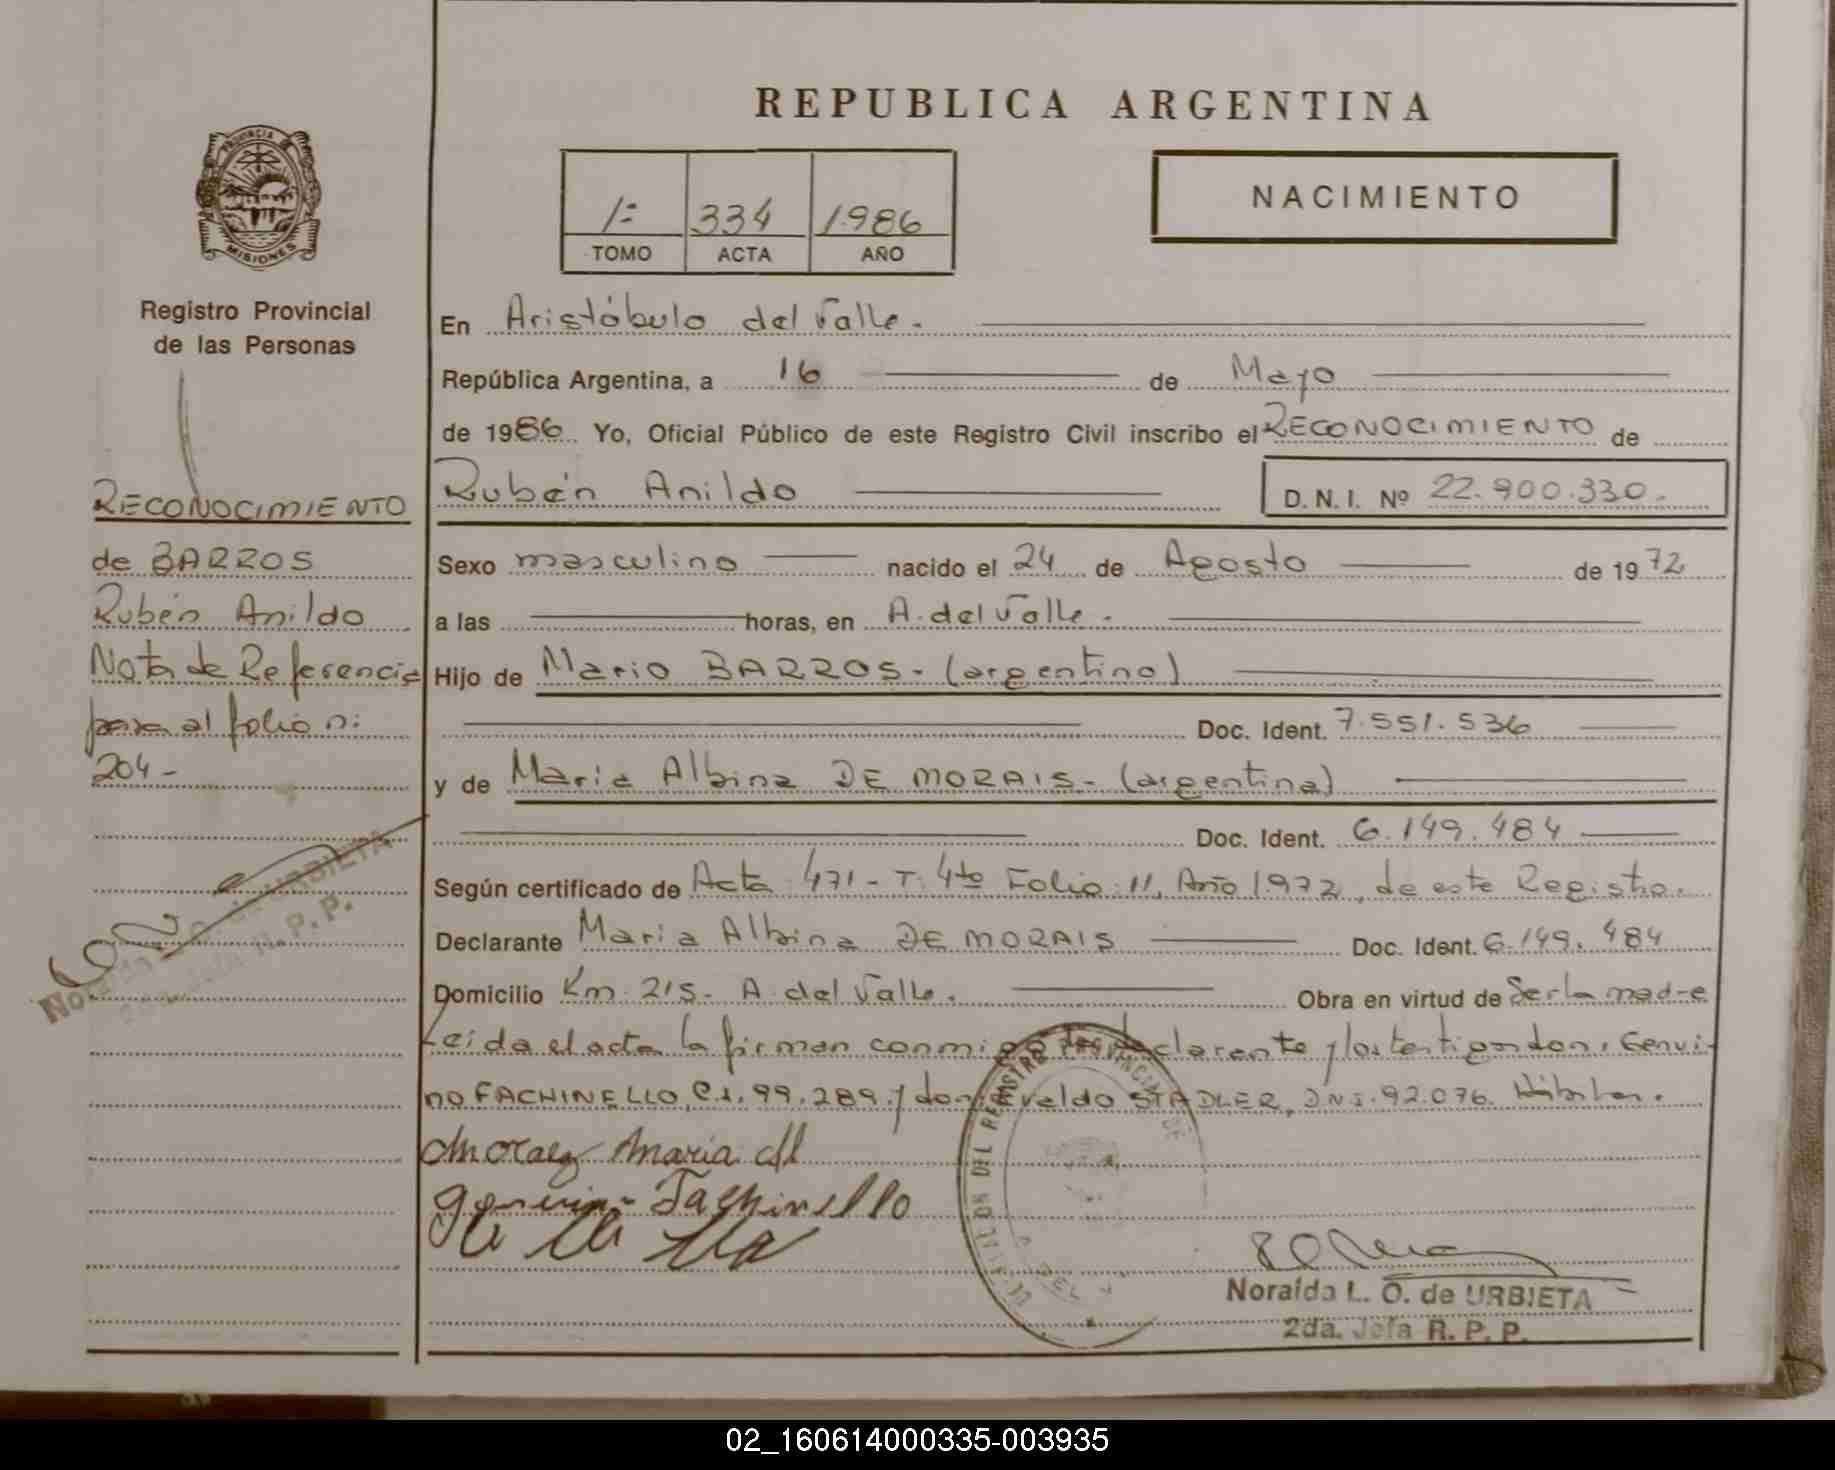 REPUBLICA ARGENTINA
PROVINCIA DE
MISIONES
Registro Provincial
de las Personas
1º 334 1.986
TOMO ACTA AÑO
NACIMIENTO
En Aristóbulo del Valle.
República Argentina, a 16 de Mayo
de 1986 Yo, Oficial Público de este Registro Civil inscribo el RECONOCIMIENTO de
Rubén Anildo D. N. I. Nº 22.900.330.
Sexo masculino nacido el 24 de Agosto de 1972
a las horas, en A. del Valle.
Hijo de Mario BARROS- (argentino)
Doc. Ident. 7.551.536
y de Maria Albina DE MORAIS- (argentina)
Doc. Ident. 6.149.484
Según certificado de Acta 471- T. 4to Folio 11, Año 1.972, de este Registro.
Declarante Maria Albina DE MORAIS Doc. Ident. 6.149.484
Domicilio Km. 215- A. del Valle. Obra en virtud de Ser la madre
Leida el acta la firman conmigo la declarante y los testigos don: Genui-
no FACHINELLO, C.I. 99.289. y don STADLER, D.N.I. 92.076.
Moraez Maria
Fachinello
RECONOCIMIENTO
de BARROS
Rubén Anildo
Nota de Referencia
para al folio n:
204-
DEL REGISTRO PROVINCIAL DE
Noraida L. O. de URBIETA
2da. Jefa R. P. P.
URBIETA
R. P. P.
02_160614000335-003935